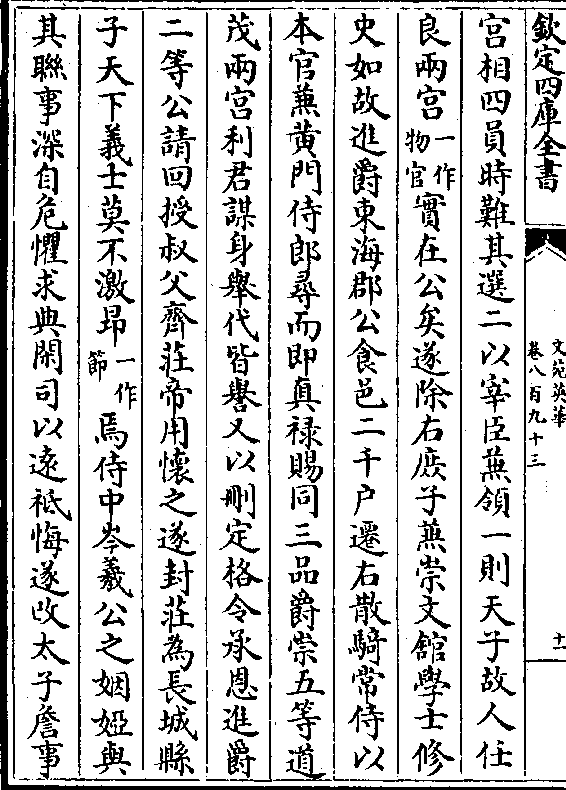 欽定四庫全書
文苑英華
卷八百九十三
十一
宫相四員時難其選二以宰臣兼領一則天子故人任
良兩宫一作物官實在公矣遂除右庻子兼崇文舘學士修
史如故進爵東海郡公食邑二千户遷右散騎常侍以
本官兼黄門侍郎尋而即真禄賜同三品爵崇五等道
茂兩宫利君謀身舉代皆譽又以刪定格令承恩進爵
二等公請回授叔父齊莊帝用懷之遂封莊為長城縣
子天下義士莫不激昂一作節焉侍中岑羲公之姻婭與
其聯事深自危懼求典閑司以逺祗悔遂改太子詹事